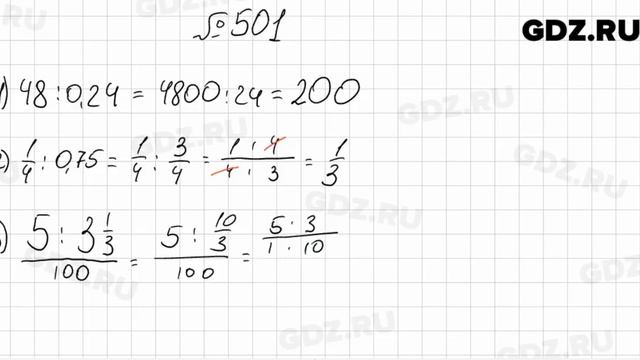 №501
GDZ.RU
) 48 : 0,24 = 4800 : 24 = 200
) 1/4 : 0,75 = 1/4 : 3/4 = 1 · 4 / 4 · 3 = 1/3
) 5 : 3 1/3 / 100 = 5 : 10/3 / 100 = 5 · 3 / 1 · 10
GDZ.RU
GDZ.RU
GDZ.RU
GDZ.RU
GDZ.RU
GDZ.RU
GDZ.RU